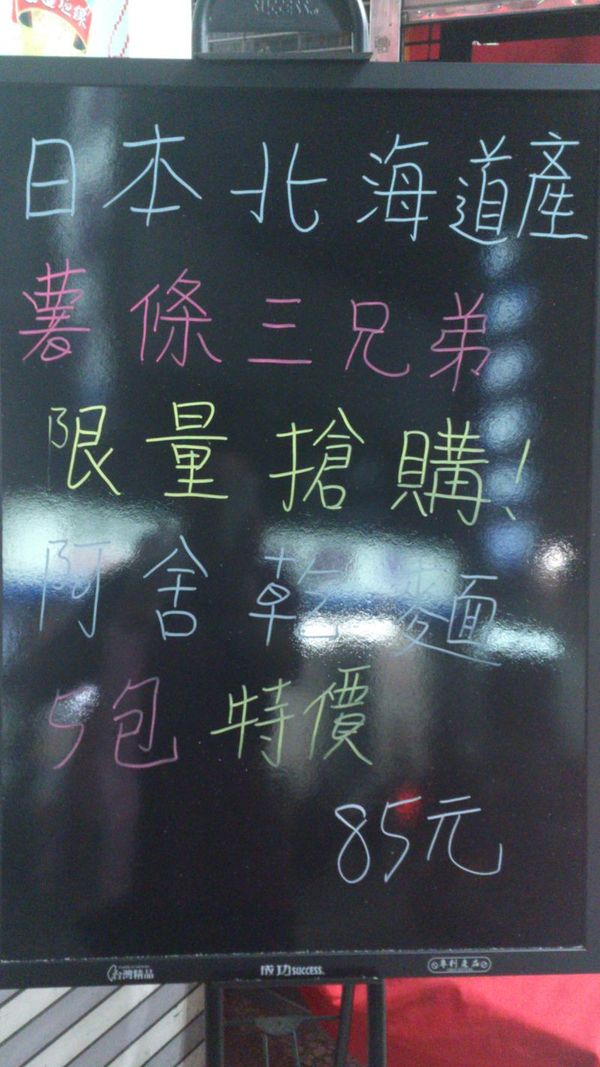 SUCCESS
日本北海道產
薯條三兄弟
限量搶購!
阿舍乾麵
5包特價
85元
台灣精品
成功SUCCESS
專利產品